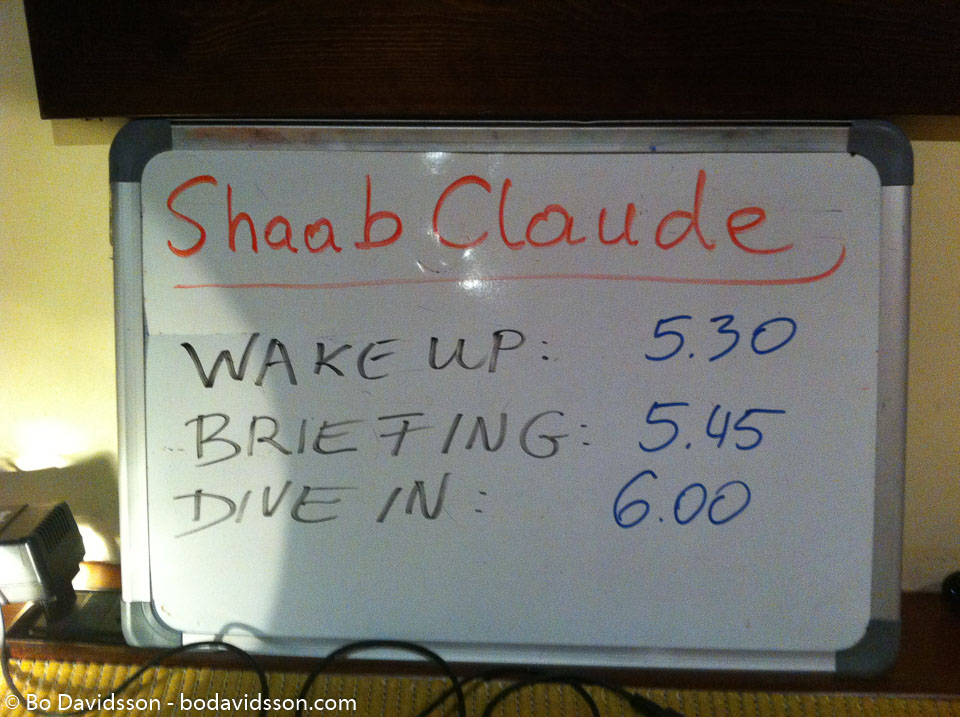 Shaab Claude
WAKE UP: 5.30
BRIEFING: 5.45
DIVE IN: 6.00
© Bo Davidsson - bodavidsson.com